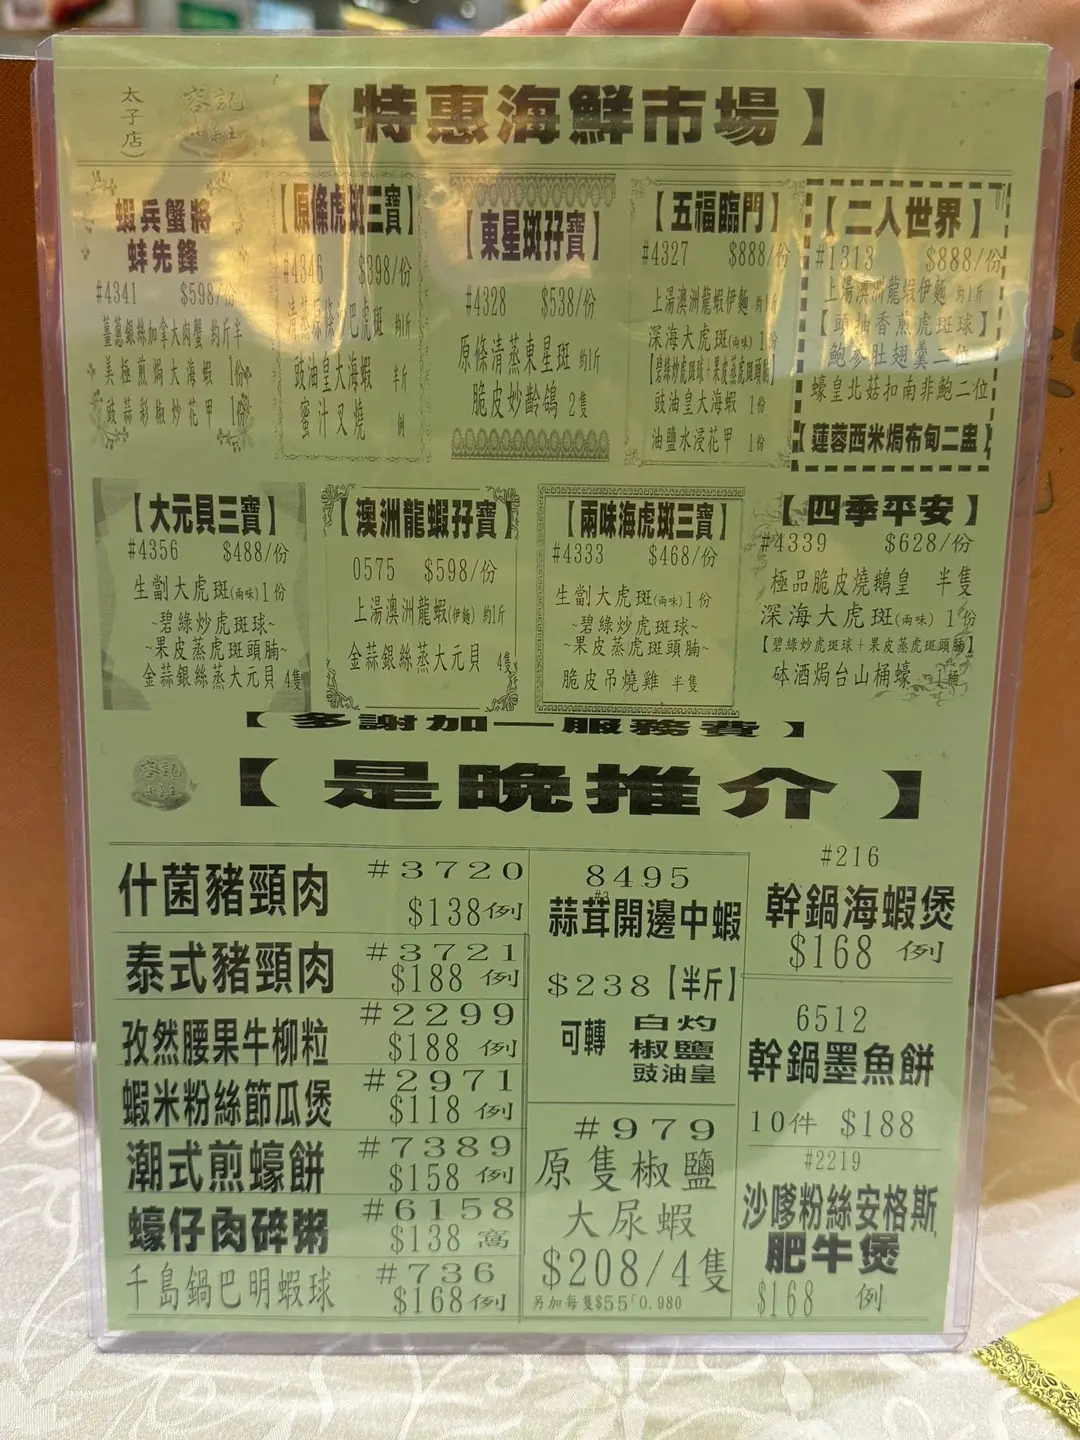 太子店）
容記
【特惠海鮮市場】
蝦兵蟹將
蚌先鋒
#4341 $598/份
薑蔥銀絲加拿大肉蟹 約斤半
美極煎焗大海蝦 1份
豉蒜彩椒炒花甲 1份
【原條虎斑三寶】
#4346 $398/份
清蒸原條 巴虎斑 約1斤
豉油皇大海蝦 半斤
蜜汁叉燒 例
【東星斑孖寶】
#4328 $538/份
原條清蒸東星斑 約1斤
脆皮妙齡鴿 2隻
【五福臨門】
#4327 $888/份
上湯澳洲龍蝦伊麵 約1斤
深海大虎斑(兩味) 1份
【碧綠炒虎斑球+果皮蒸虎斑頭腩】
豉油皇大海蝦 1份
油鹽水浸花甲 1份
【二人世界】
#1313 $888/份
上湯澳洲龍蝦伊麵 約1斤
【頭抽香煎虎斑球】
鮑參肚翅羹二位
蠔皇北菇扣南非鮑二位
【蓮蓉西米焗布甸二盅】
【大元貝三寶】
#4356 $488/份
生劏大虎斑(兩味)1份
~碧綠炒虎斑球~
~果皮蒸虎斑頭腩~
金蒜銀絲蒸大元貝 4隻
【澳洲龍蝦孖寶】
0575 $598/份
上湯澳洲龍蝦(伊麵) 約1斤
金蒜銀絲蒸大元貝 4隻
【兩味海虎斑三寶】
#4333 $468/份
生劏大虎斑(兩味)1份
~碧綠炒虎斑球~
~果皮蒸虎斑頭腩~
脆皮吊燒雞 半隻
【四季平安】
#4339 $628/份
極品脆皮燒鵝皇 半隻
深海大虎斑(兩味) 1份
【碧綠炒虎斑球+果皮蒸虎斑頭腩】
砵酒焗台山桶蠔 1桶
【多謝加一服務費】
容記
【是晚推介】
什菌豬頸肉 #3720
$138例
泰式豬頸肉 #3721
$188 例
孜然腰果牛柳粒 #2299
$188 例
蝦米粉絲節瓜煲 #2971
$118 例
潮式煎蠔餅 #7389
$158 例
蠔仔肉碎粥 #6158
$138 窩
千島鍋巴明蝦球 #736
$168例
8495
蒜茸開邊中蝦
$238【半斤】
可轉 白灼
椒鹽
豉油皇
#979
原隻椒鹽
大尿蝦
$208/4隻
另加每隻$55「0.980
#216
幹鍋海蝦煲
$168 例
6512
幹鍋墨魚餅
10件 $188
#2219
沙嗲粉絲安格斯
肥牛煲
$168 例